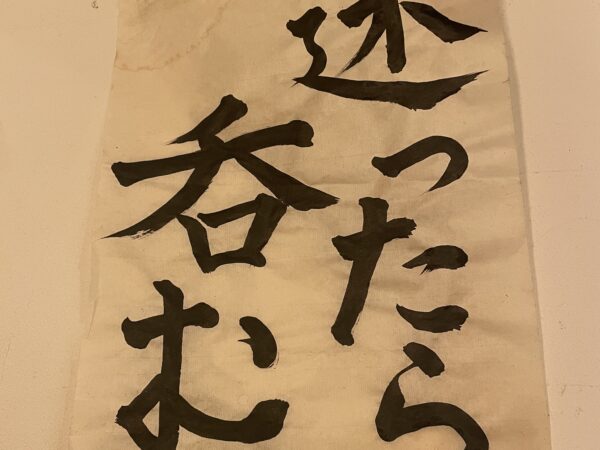 迷ったら
呑む